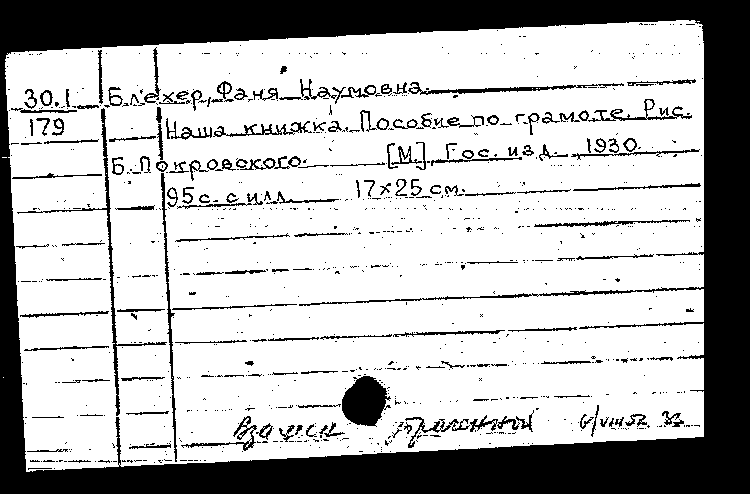 30.1 Блехер, Фаня Наумовна.
179 Наша книжка. Пособие по грамоте. Рис.
Б. Покровского. [М]. Гос. изд. 1930.
95 с. с илл. 17×25 см.
Взамен утраченной 6/VIII 52